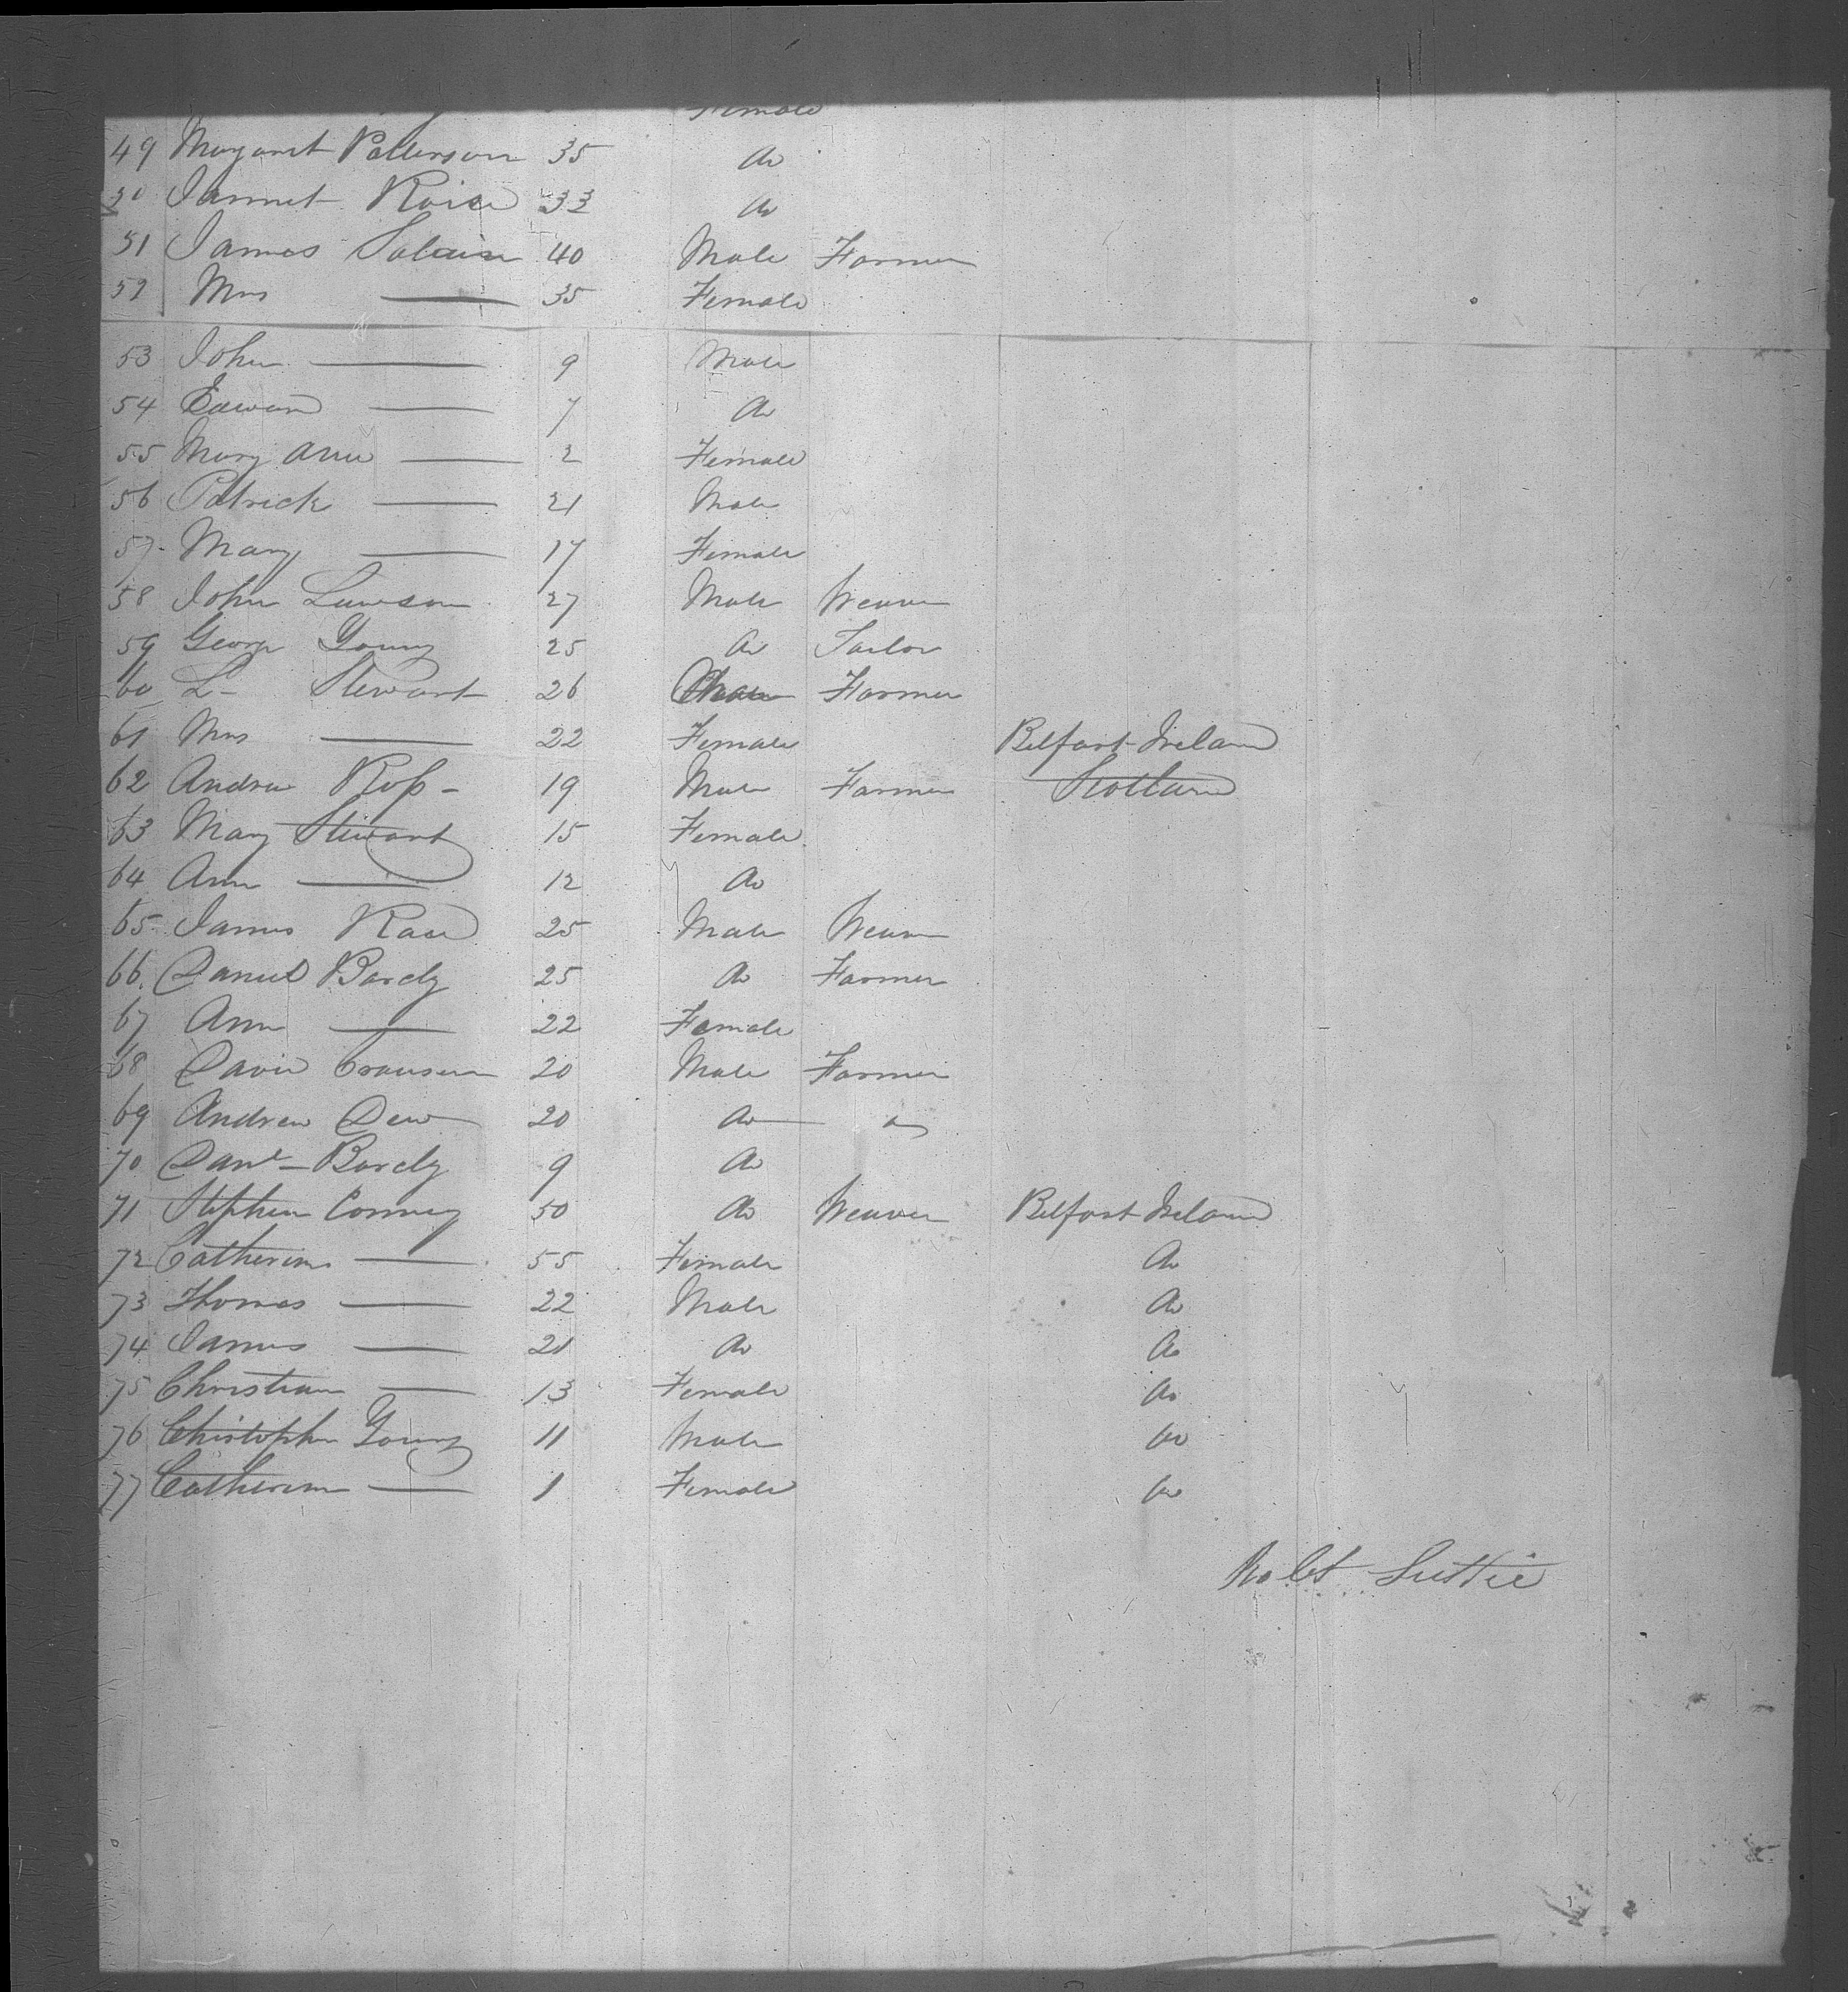 Female
49 Margaret Patterson 35 Do
50 Jannet Roise 33 Do
51 James 40 Male Farmer
52 Mrs —— 35 Female
53 John —— 9 Male
54 Edward —— 7 Do
55 Mary Ann —— 2 Female
56 Patrick —— 21 Male
57 Mary —— 17 Female
58 John Lawson 27 Male Weaver
59 George Young 25 Do Tailor
60 L— Stewart 26 Farmer
61 Mrs —— 22 Female Belfast Ireland
62 Andrew Ross — 19 Male Farmer Scotland
63 Mary Stewart 15 Female
64 Ann —— 12 Do
65 James Race 25 Male Weaver
66 Daniel Barcly 25 Do Farmer
67 Ann —— 22 Female
68 David 20 Male Farmer
69 Andrew Dew 20 Do Do
70 Danl — Barcly 9 Do
71 Stephen Conway 50 Do Weaver Belfast Ireland
72 Catherine —— 55 Female Do
73 Thomas —— 22 Male Do
74 James —— 21 Do Do
75 Christian —— 13 Female Do
76 Christopher Young 11 Male Do
77 Catherine —— 1 Female Do
Robt Suttie